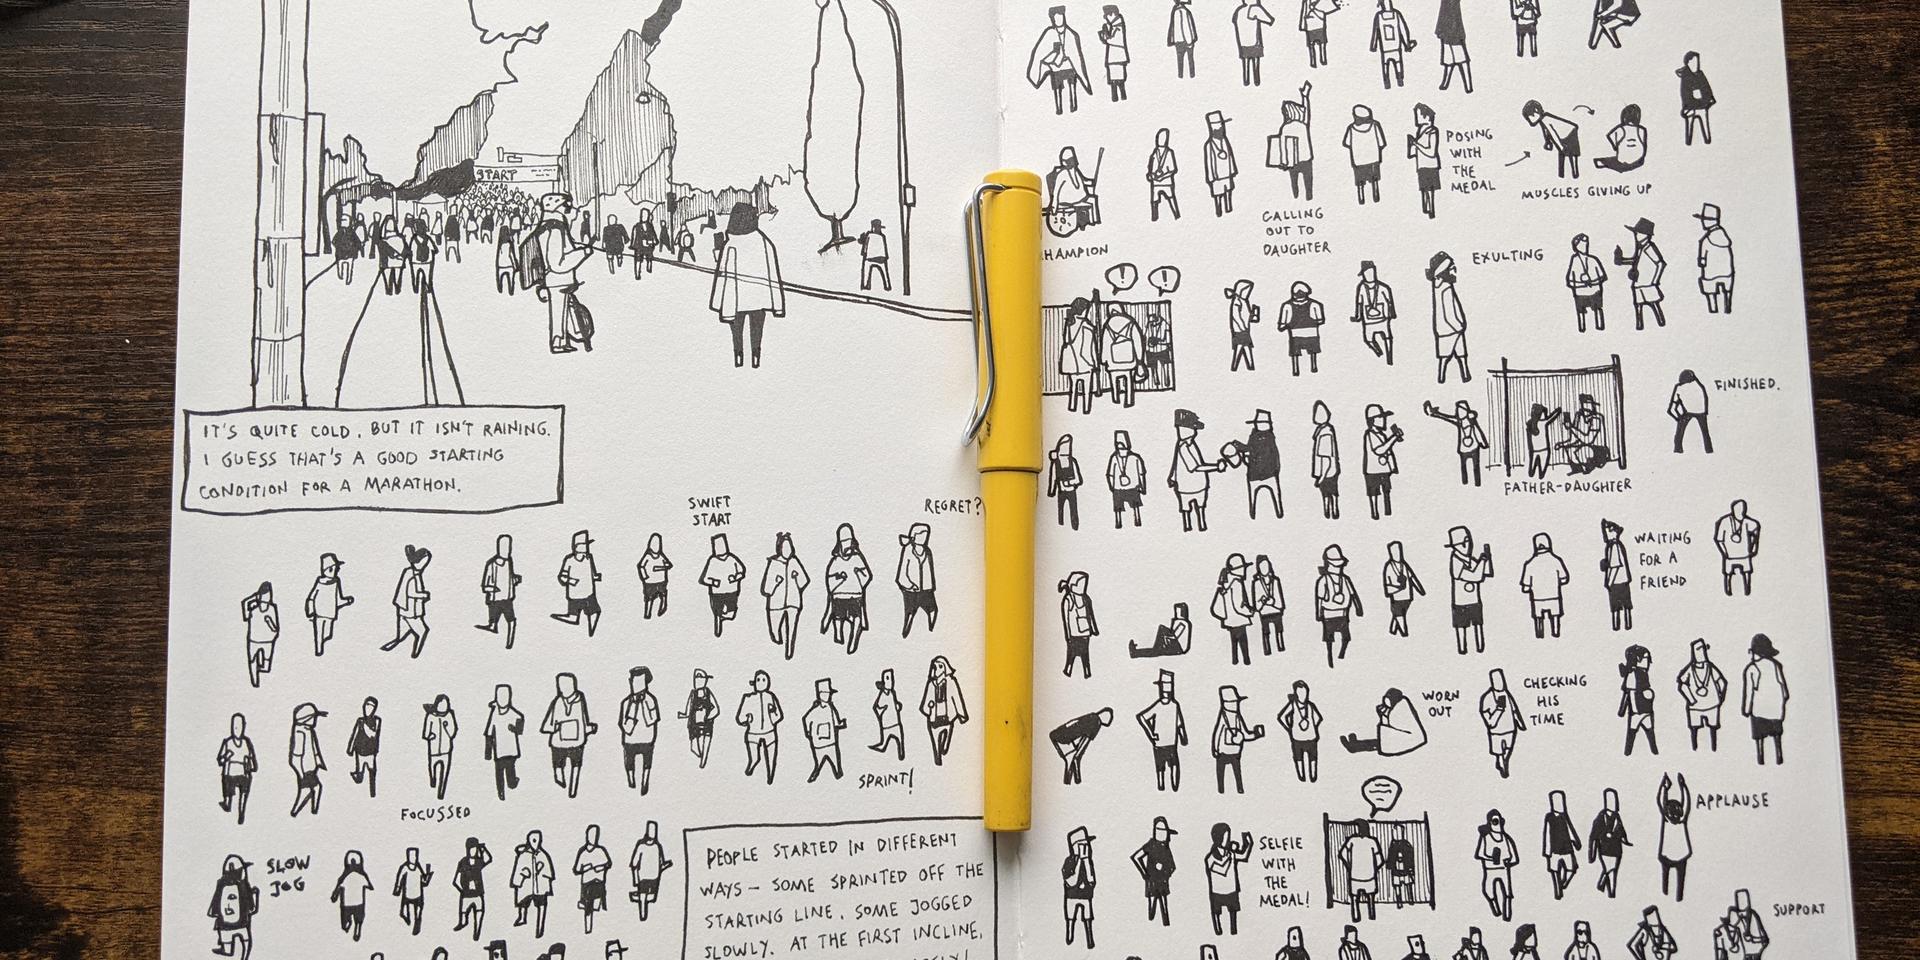 START
IT'S QUITE COLD, BUT IT ISN'T RAINING.
I GUESS THAT'S A GOOD STARTING
CONDITION FOR A MARATHON.
SWIFT
START
REGRET?
SPRINT!
FOCUSSED
SLOW
JOG
PEOPLE STARTED IN DIFFERENT
WAYS – SOME SPRINTED OFF THE
STARTING LINE, SOME JOGGED
SLOWLY. AT THE FIRST INCLINE,
POSING
WITH
THE
MEDAL
MUSCLES GIVING UP
CALLING
OUT TO
DAUGHTER
HAMPION
EXULTING
!
!
FINISHED.
FATHER-DAUGHTER
WAITING
FOR A
FRIEND
WORN
OUT
CHECKING
HIS
TIME
APPLAUSE
SELFIE
WITH
THE
MEDAL!
SUPPORT